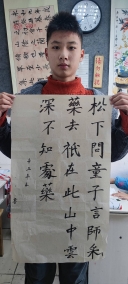 松下問童子言師采
藥去祇在此山中雲
深不知處藥